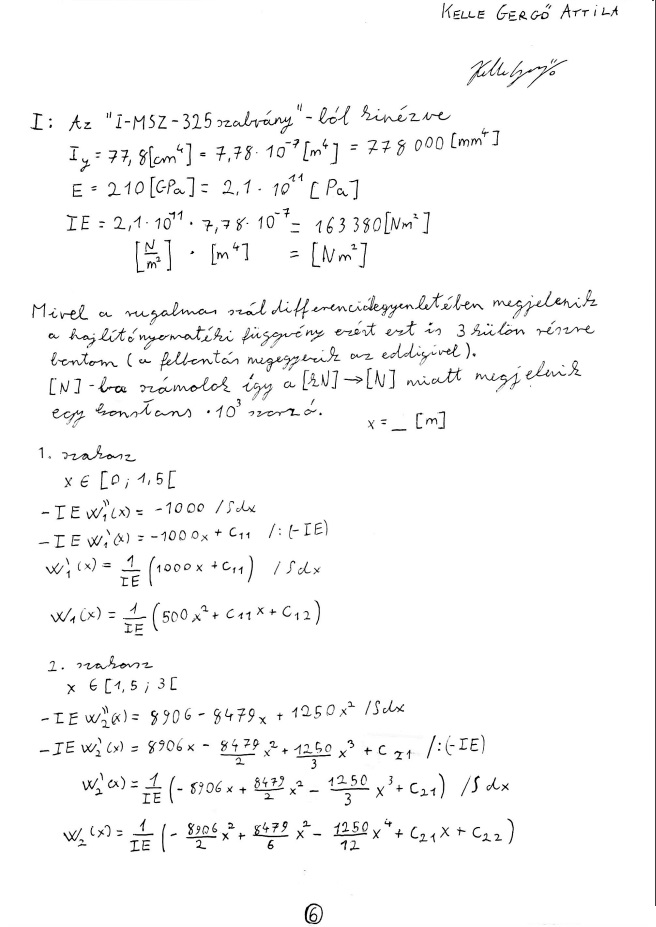 KELLE GERGŐ ATTILA
Kelle Gergő
I: Az "I-MSZ-325 szabvány"-ból kinézve
I_y = 77,8[cm⁴] = 7,78·10⁻⁷[m⁴] = 778 000 [mm⁴]
E = 210[GPa] = 2,1·10¹¹ [Pa]
IE = 2,1·10¹¹ · 7,78·10⁻⁷ = 163 380[Nm²]
[N/m²] · [m⁴] = [Nm²]
Mivel a rugalmas szál differenciálegyenletében megjelenik
a hajlítónyomatéki függvény ezért ezt is 3 külön részre
bontom (a felbontás megegyezik az eddigivel).
[N]-ba számolok így a [kN]→[N] miatt megjelenik
egy konstans ·10³ szorzó.
x = _ [m]
1. szakasz
x ∈ [0 ; 1,5[
-IE w₁''(x) = -1000 /∫dx
-IE w₁'(x) = -1000x + C₁₁ /:(-IE)
w₁'(x) = 1/IE (1000x + C₁₁) /∫dx
w₁(x) = 1/IE (500x² + C₁₁x + C₁₂)
2. szakasz
x ∈ [1,5 ; 3[
-IE w₂''(x) = 8906 - 8479x + 1250x² /∫dx
-IE w₂'(x) = 8906x - 8479/2 x² + 1250/3 x³ + C₂₁ /:(-IE)
w₂'(x) = 1/IE (-8906x + 8479/2 x² - 1250/3 x³ + C₂₁) /∫dx
w₂(x) = 1/IE (-8906/2 x² + 8479/6 x² - 1250/12 x⁴ + C₂₁x + C₂₂)
6